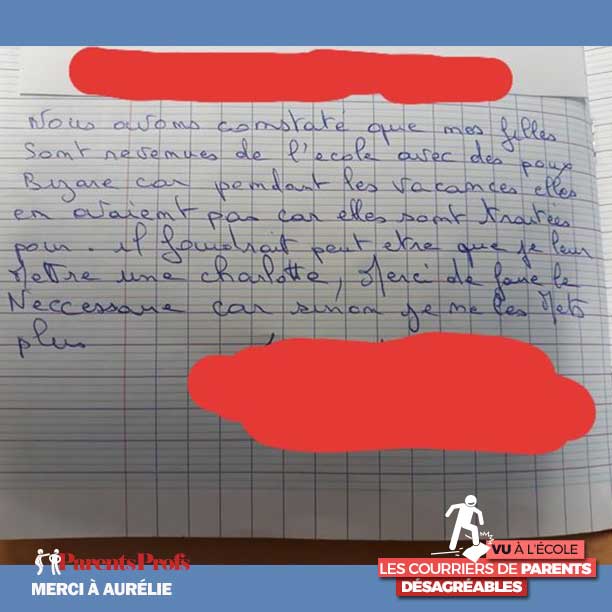 Nous avons constaté que mes filles
Sont revenues de l'ecole avec des poux
Bizare car pendant les vacances elles
en avaient pas car elles sont traitées
pour. il faudrait peut etre que je leur
Mettre une charlotte, Merci de faire le
Neccessaire car sinon je ne les Mets
plus
ParentsProfs
MERCI À AURÉLIE
VU À L'ÉCOLE
LES COURRIERS DE PARENTS
DÉSAGRÉABLES